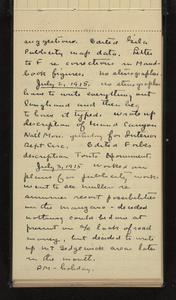 suggestions. Edited Gila
Publicity map data. Letter
to F re corrections in Hand-
book figures. no stenographer.
July 2, 1915. no stenographer
have to write everything out
longhand and then
to have it typed. Wrote up
description of Grand Canyon
Natl Mon. for Interior
Dept Circ. Edited Forbes
description, Tonto
July 3, 1915 worked on
plans for publicity work.
Went to see Muller re
summer resort possibilities
in the Manzano - decided
nothing could be done at
present on a/c lack of road
money, but decided to write
up Mt Sedgewick area later
in the month.
PM - holiday.